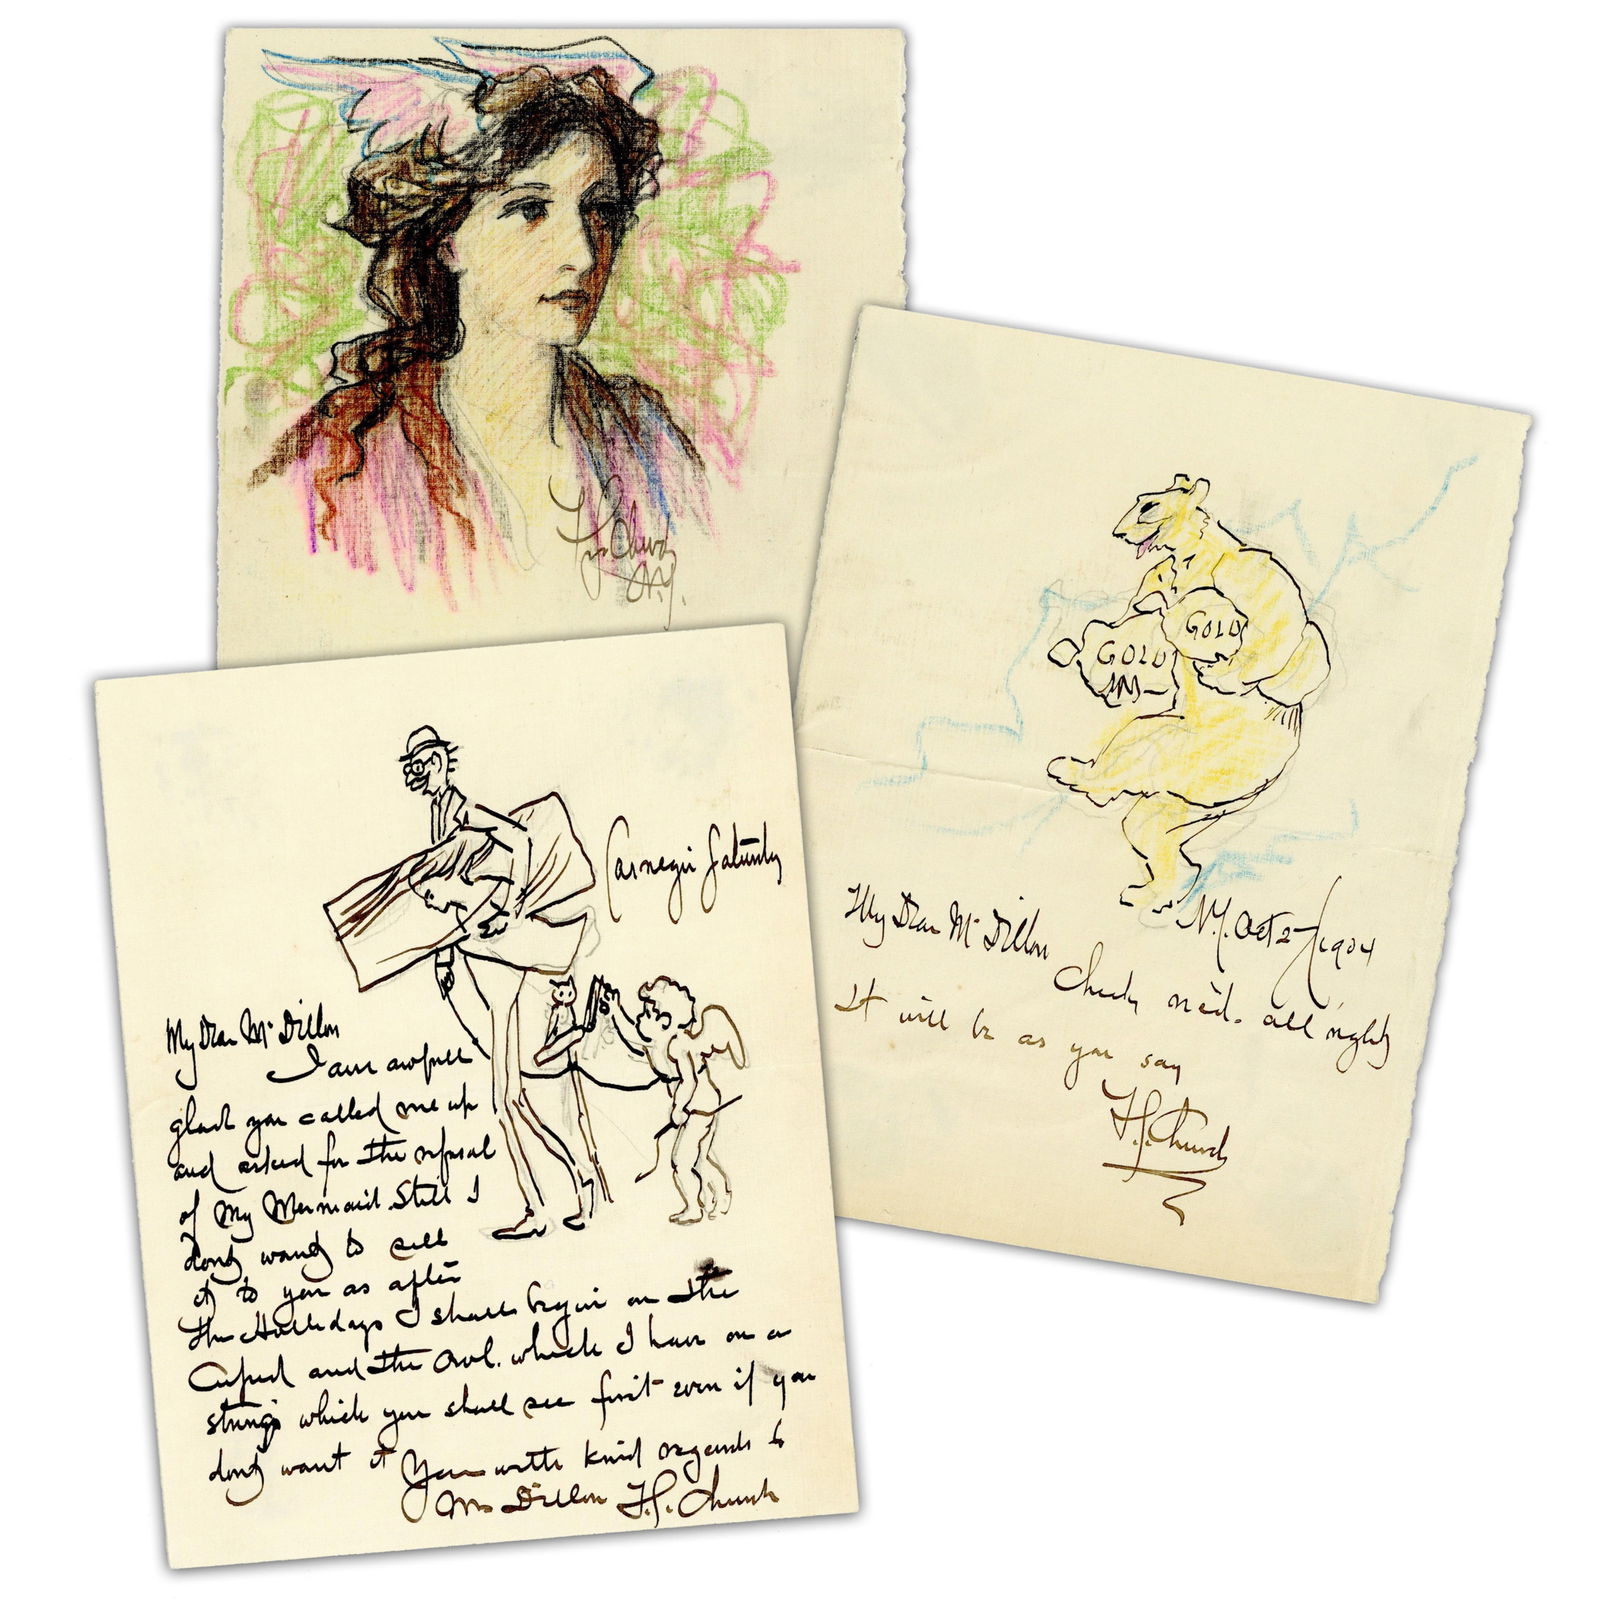 F. S. Church
N.Y.
GOLD
GOLD
My Dear Mr Dillon
N.Y. Oct 2 1904
Check rec'd. all right
It will be as you say
F. S. Church
Carnegie Saturday
My Dear Mr Dillon
I am awfull
glad you called me up
and asked for the refusal
of My Mermaid. Still I
dont want to sell
it to you as after
the Hollidays I shall begin on the
Cupid and the Owl. which I have on a
string which you shall see first even if you
dont want it
Yours with kind regards to
Mrs Dillon F. S. Church